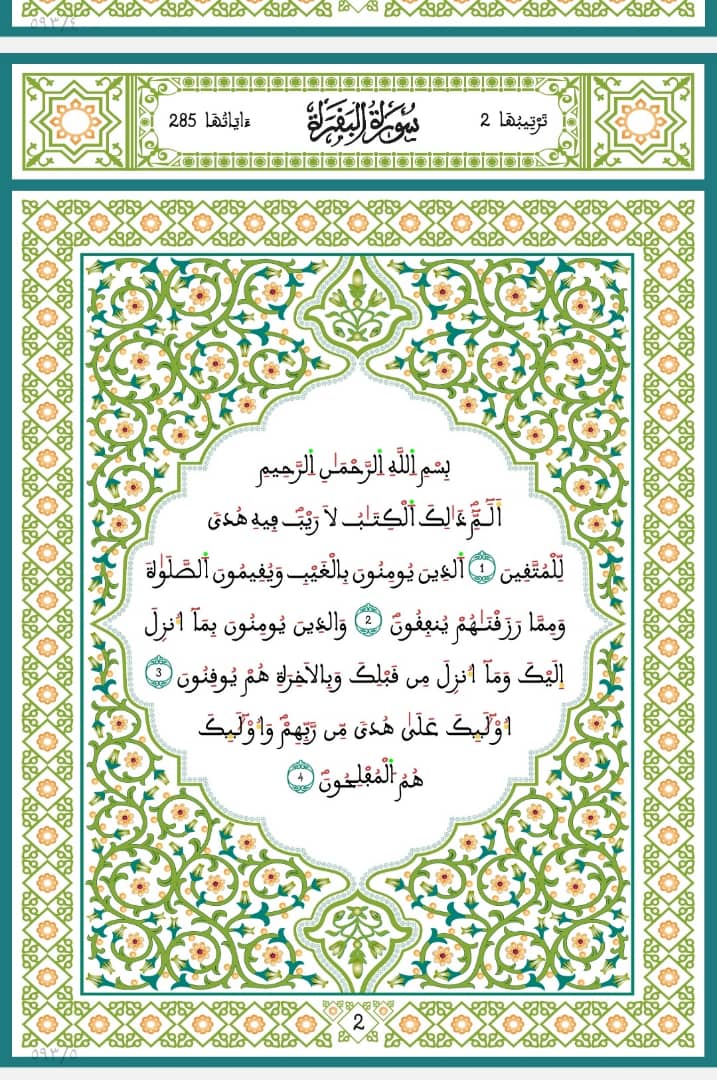 ٥٩٣/٤
تَرْتِيبُهَا 2 سُورَةُ اُ۬لْبَڧَرَةِ ءَايَاتُهَا 285
بِسْمِ اِ۬للَّهِ اِ۬لرَّحْمَٰنِ اِ۬لرَّحِيمِ
أَلَٓمِّٓۖ ذَٰلِكَ اَ۬لْكِتَٰبُ لَا رَيْبَۖ ڢِيهِ هُدىٗ
لِّلْمُتَّڧِينَ 1 اَ۬لذِينَ يُومِنُونَ بِالْغَيْبِ وَيُڧِيمُونَ اَ۬لصَّلَوٰةَ
وَمِمَّا رَزَڧْنَٰهُمْ يُنڢِڧُونَۖ 2 وَالذِينَ يُومِنُونَ بِمَآ أُنزِلَ
إِلَيْكَ وَمَآ أُنزِلَ مِن ڧَبْلِكَ وَبِالَاخِرَةِ هُمْ يُوڧِنُونَ 3
أُوْلَٰٓئِكَ عَلَىٰ هُدىٗ مِّن رَّبِّهِمْۖ وَأُوْلَٰٓئِكَ
هُمُ اُ۬لْمُڢْلِحُونَۖ ٤
2
٥٩٣/٥